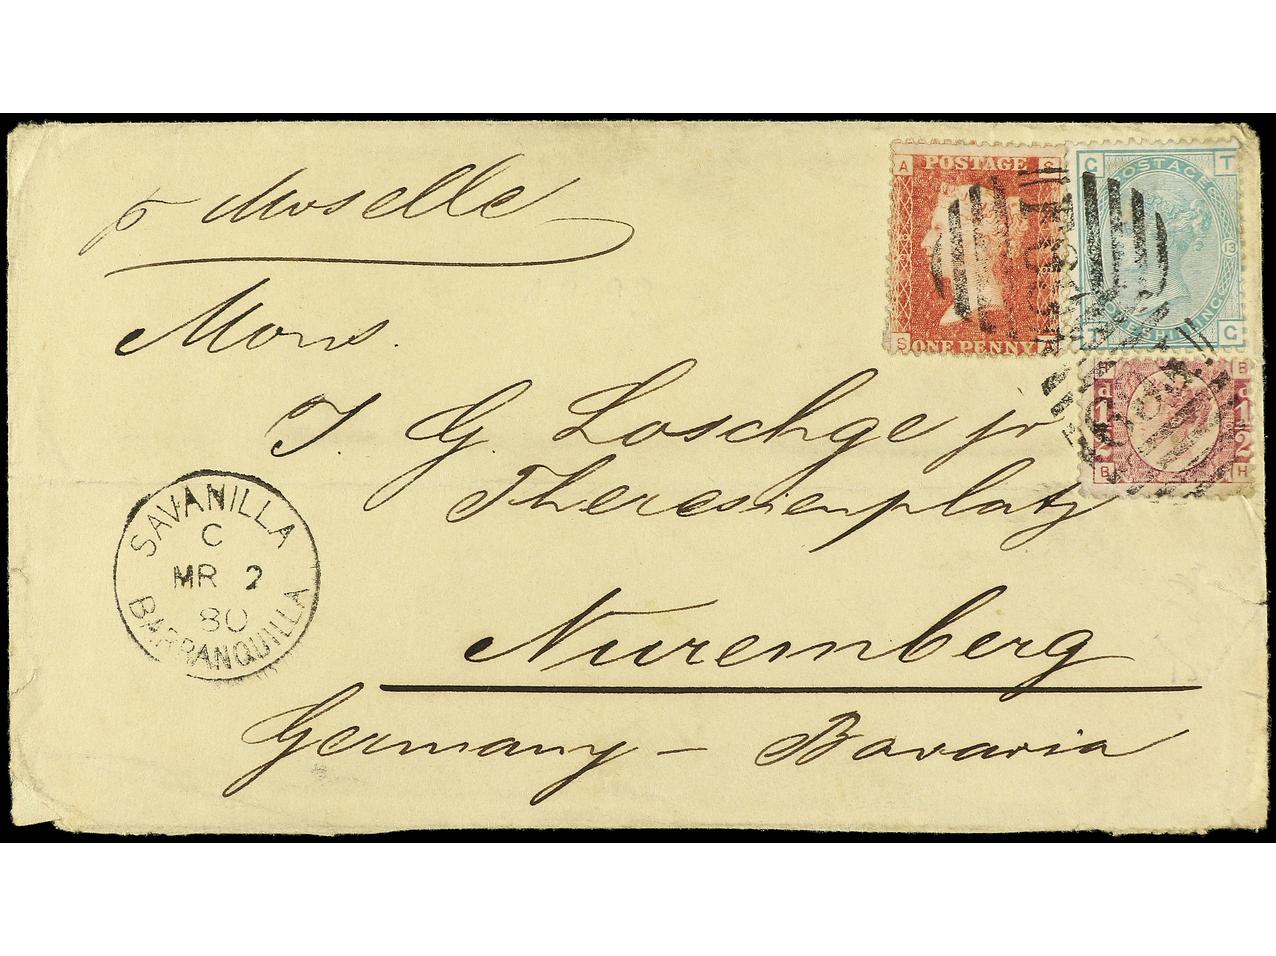 p Moselle
Mons.
T. G. Loschge jr
Theresienplatz
Nuremberg
Germany – Bavaria
SAVANILLA
C
MR 2
80
BARRANQUILLA
A POSTAGE S
S ONE PENNY A
G POSTAGE T
13
T ONE SHILLING G
H B
d d
1/2 1/2
B H